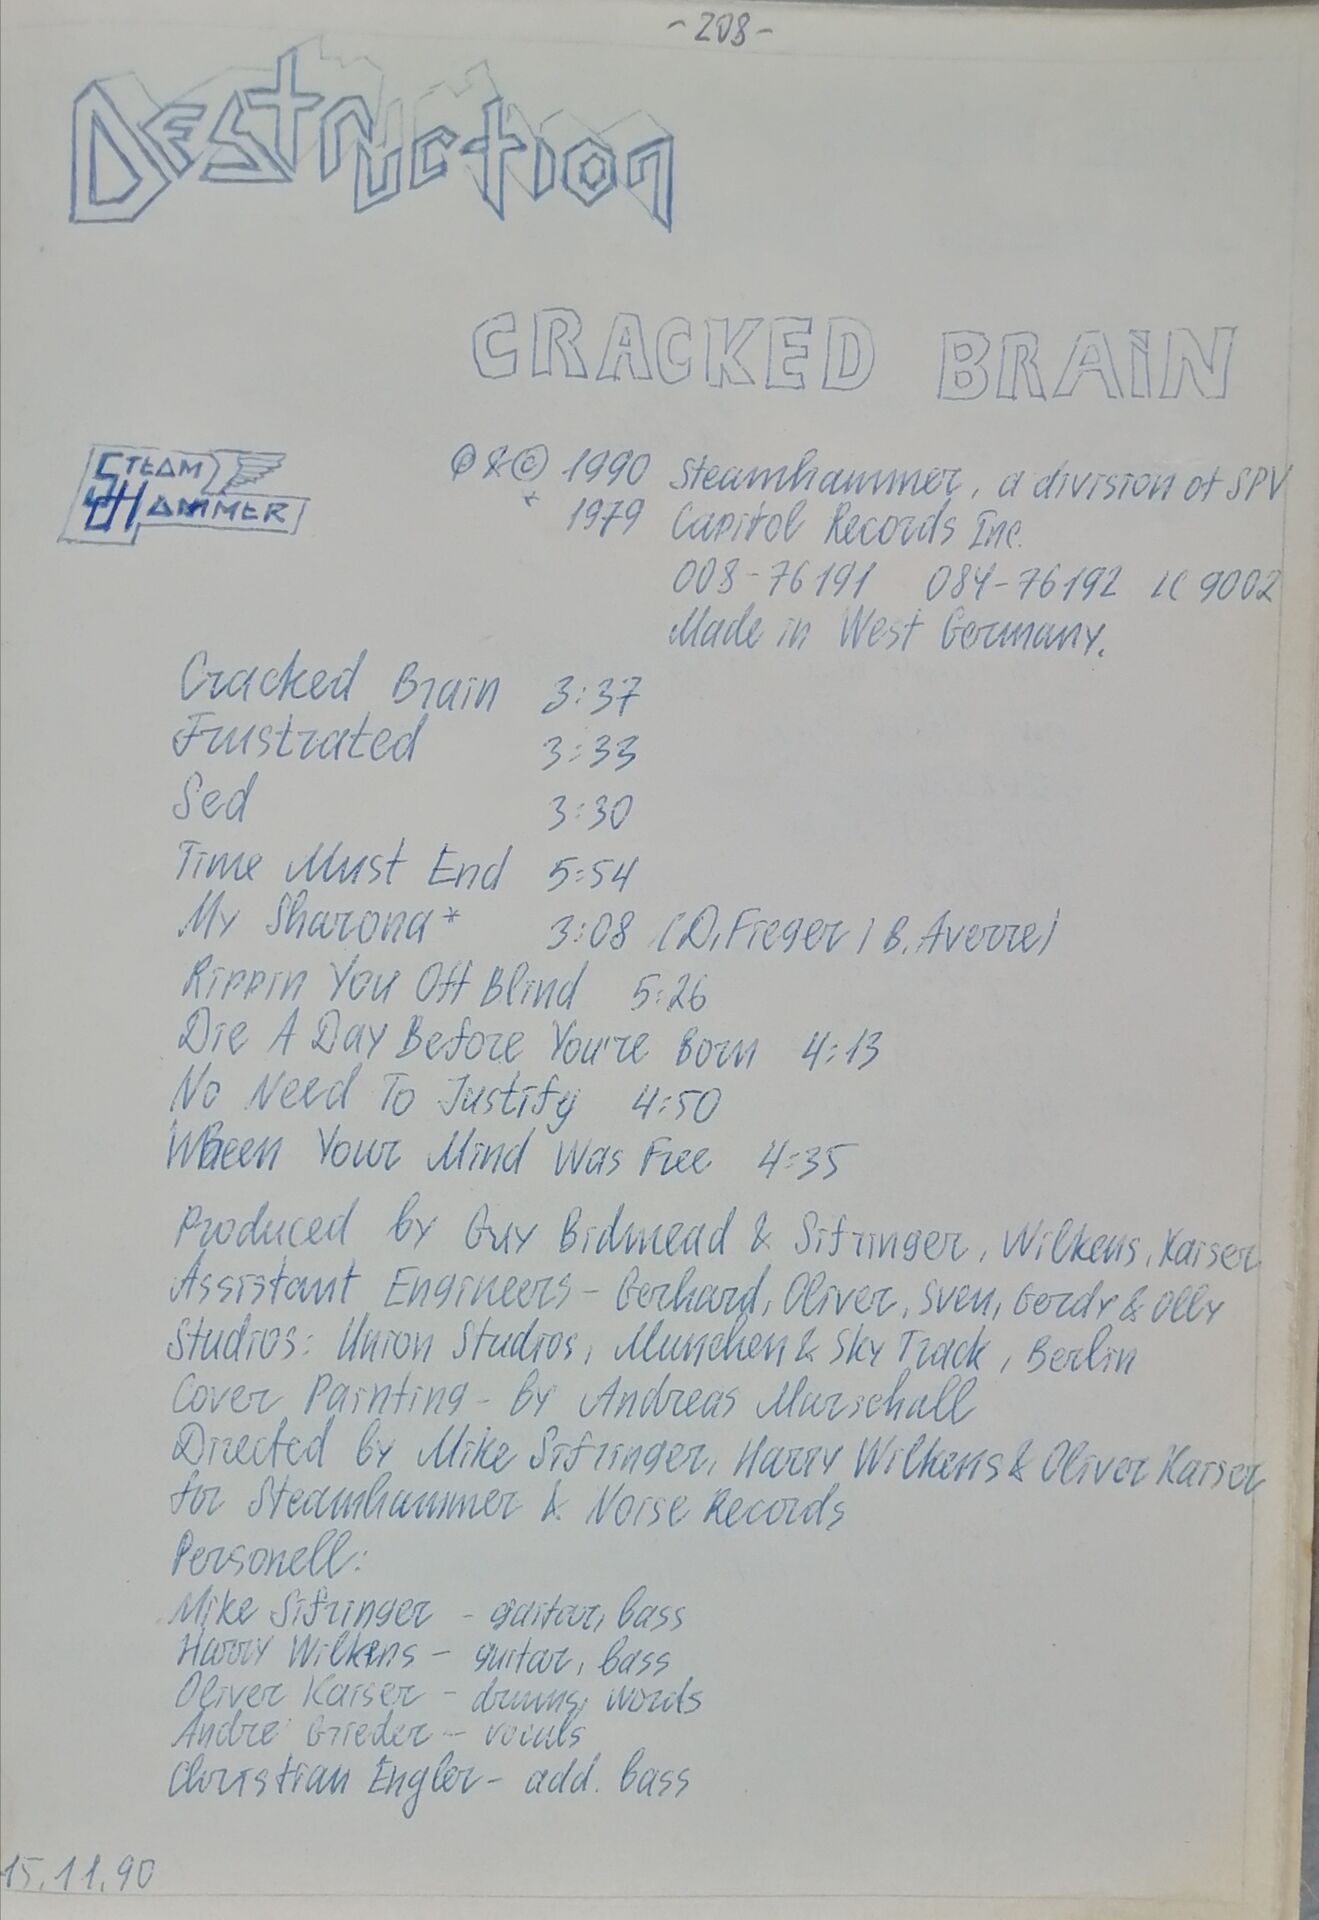 -208-
Destruction
CRACKED BRAIN
STEAM HAMMER
Ⓟ&© 1990 Steamhammer, a division of SPV
* 1979 Capitol Records Inc.
008-76191 084-76192 LC 9002
Made in West Germany.
Cracked Brain 3:37
Frustrated 3:33
Sed 3:30
Time Must End 5:54
My Sharona* 3:08 (D.Fieger / B.Averre)
Rippin You Off Blind 5:26
Die A Day Before You're Born 4:13
No Need To Justify 4:50
When Your Mind Was Free 4:35
Produced by Guy Bidmead & Sifringer, Wilkens, Kaiser
Assistant Engineers - Gerhard, Oliver, Sven, Gerdy & Olly
Studios: Union Studios, Munchen & Sky Track, Berlin
Cover Painting - By Andreas Marschall
Directed by Mike Sifringer, Harry Wilkens & Oliver Kaiser
for Steamhammer & Noise Records
Personell:
Mike Sifringer - guitar, bass
Harry Wilkens - guitar, bass
Oliver Kaiser - drums, words
Andre Grieder - vocals
Christian Engler - add. bass
15.11.90